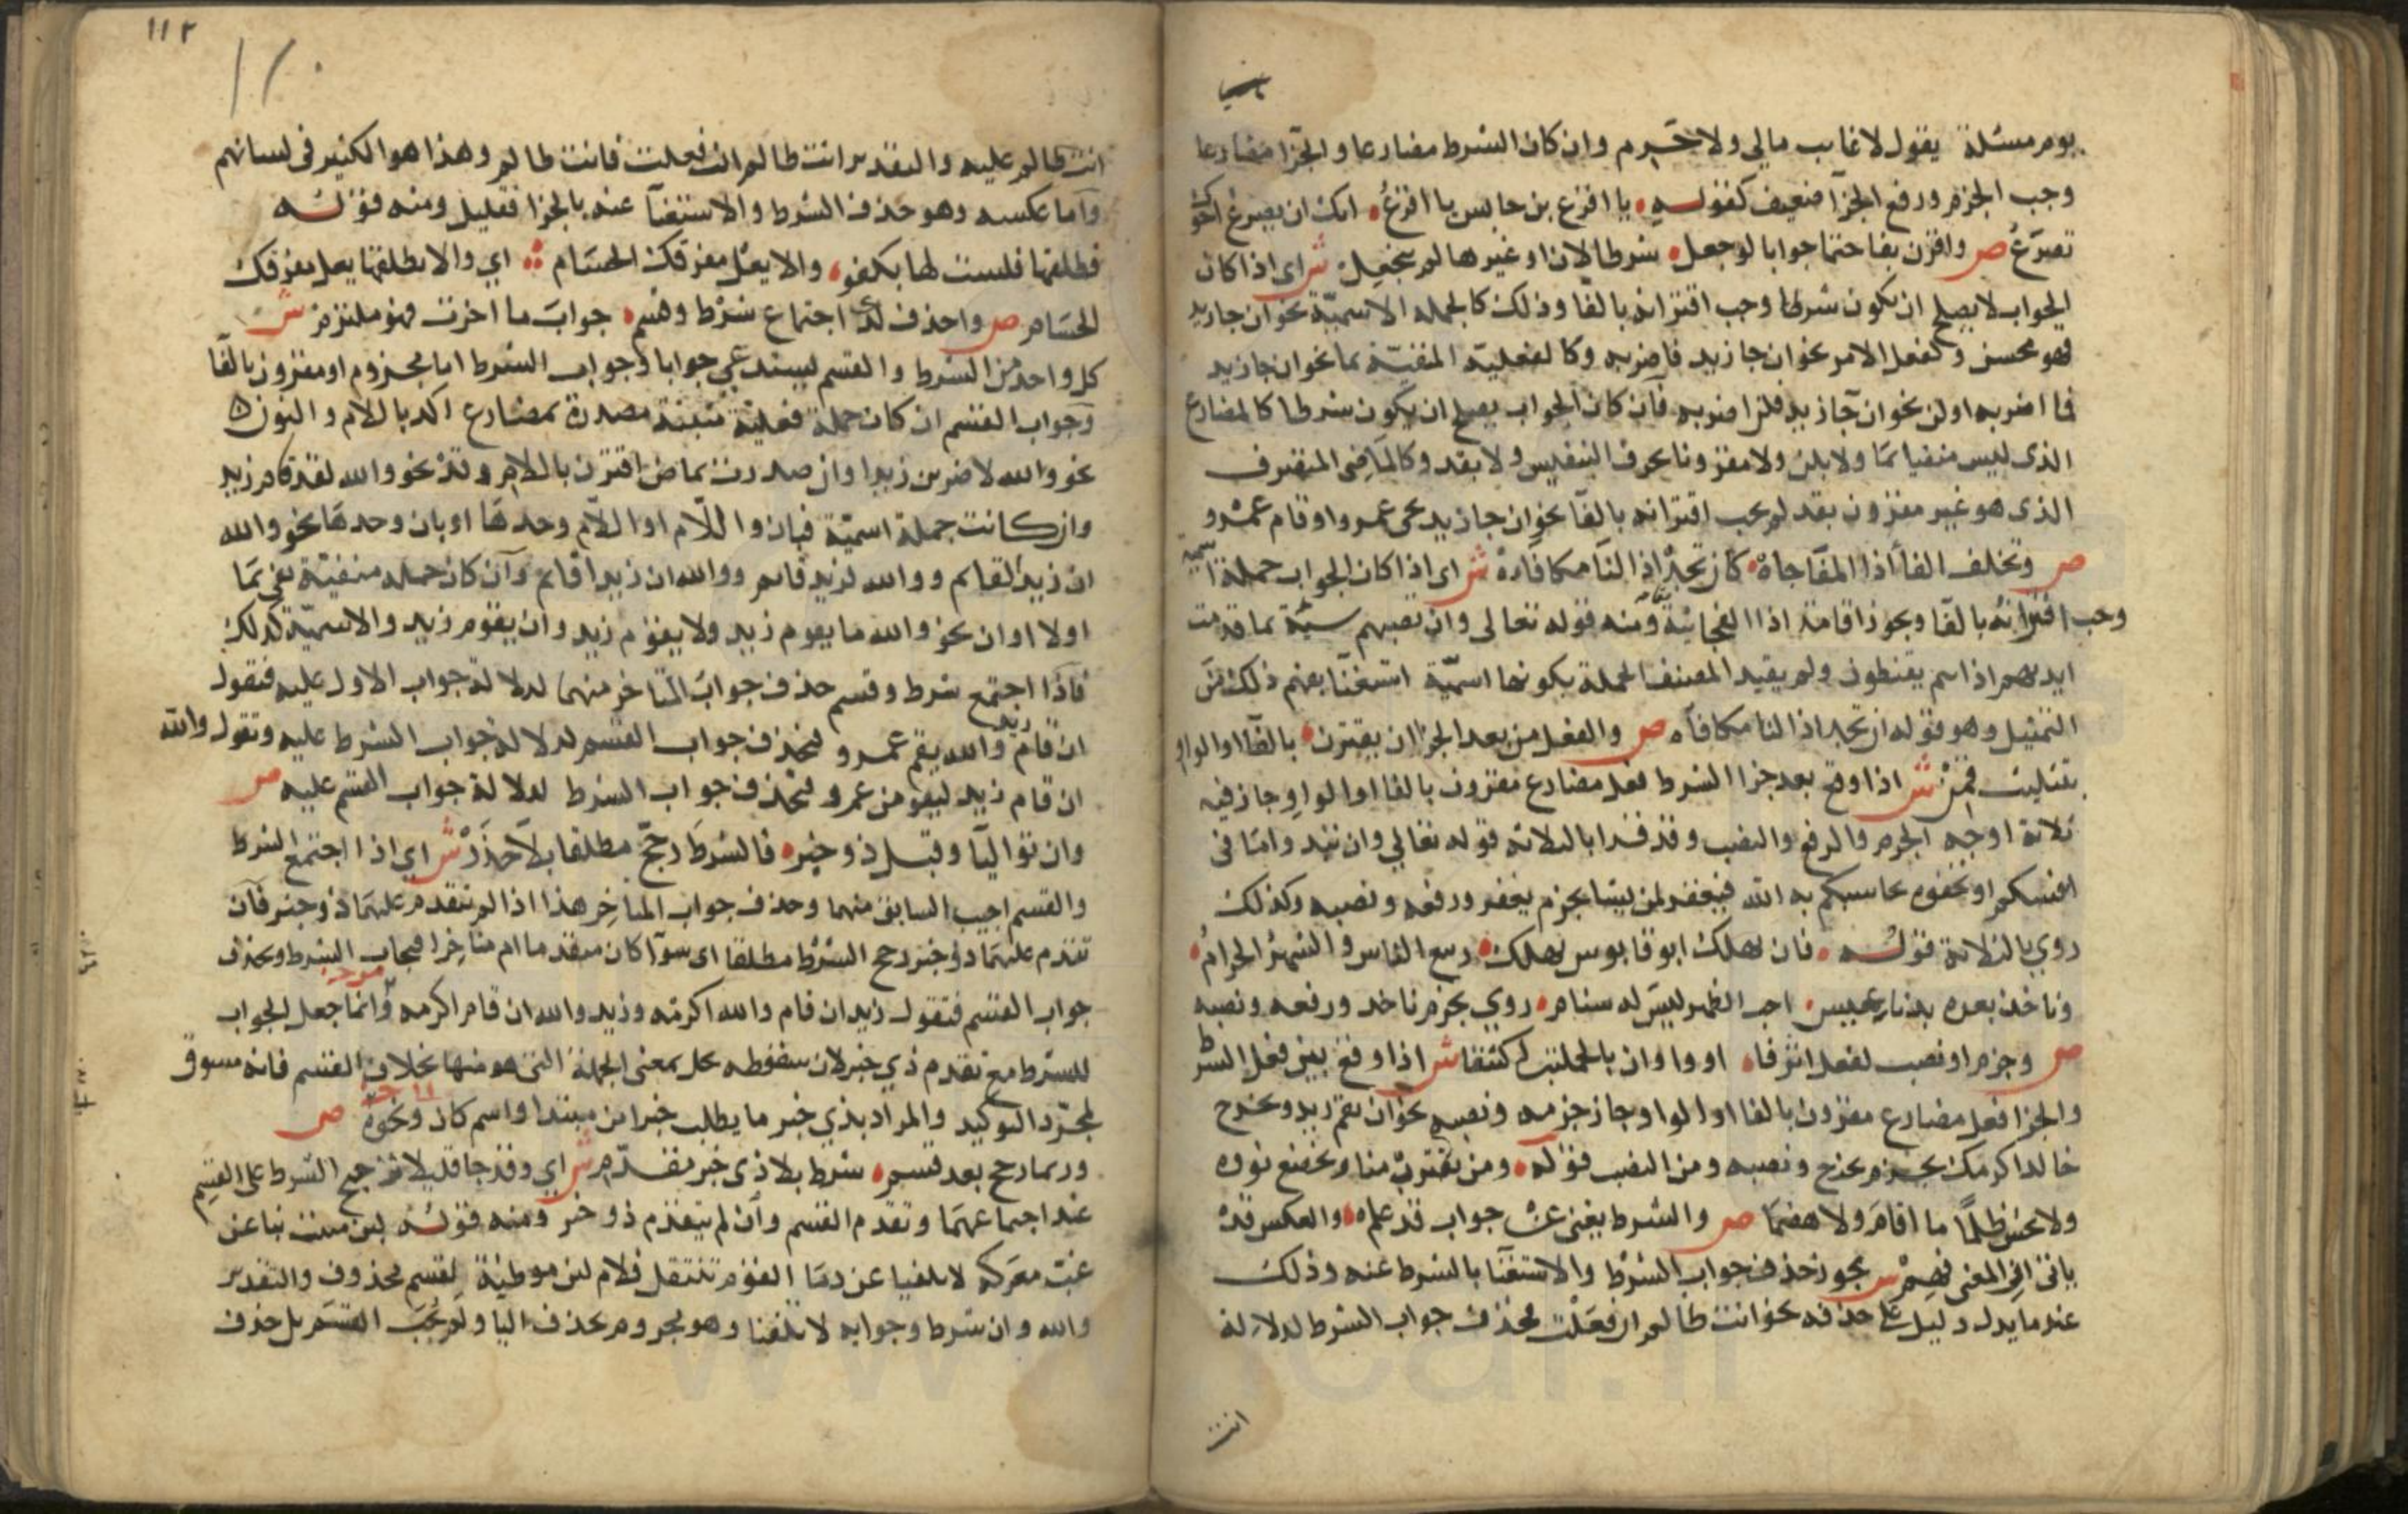 يوم مسئلة يقول لا غايب مالي ولا حرم وان كان الشرط مضارعا والجزا مضارعا
وجب الجزم ورفع الجزا ضعيف كقوله يا اقرع بن حابس يا اقرع انك ان يصرع اخوك
تصرع ص واقرن بفا حتما جوابا لو جعل شرطا لان او غيرها لم ينجعل ش اى اذا كان
الجواب لا يصلح ان يكون شرطا وجب اقترانه بالفا وذلك كالجمله الاسميّة نحو ان جا زيد
فهو محسن وكفعل الامر نحو ان جا زيد فاضربه وكالفعلية المنفيّة بما نحو ان جا زيد
فما اضربه اولن نحو ان جا زيد فلن اضربه فان كان الجواب يصلح ان يكون شرطا كالمضارع
الذى ليس منفيا بما ولا بلن ولا مقرونا بحرف التنفيس ولا بقد وكالماضى المتصرف
الذى هو غير مقرون بقد لم يجب اقترانه بالفا نحو ان جا زيد يجى عمرو او قام عمرو
ص وتخلف الفا اذا المفاجاة كان تجد اذا لنا مكافاة ش اى اذا كان الجواب جملة اسمية
وجب اقترانه بالفا ويجوز اقامة اذا الفجائية ومنه قوله تعالى وان تصبهم سيئة بما قدمت
ايديهم اذا هم يقنطون ولم يقيد المصنف الجملة بكونها اسميّة استغنا بفهم ذلك من
التمثيل وهو قوله ان تجد اذا لنا مكافاه ص والفعل من بعد الجزا ان يقترن بالفا او الواو
بتثليث قمن ش اذا وقع بعد جزا الشرط فعل مضارع مقرون بالفا او الواو جاز فيه
ثلاثة اوجه الجزم والرفع والنصب وقد قرا بالثلاثه قوله تعالي وان تبدوا ما فى
انفسكم او تخفوه يحاسبكم به الله فيغفر لمن يشا بجزم يغفر ورفعه ونصبه وكذلك
روي بالثلاثة قوله فان يهلك ابو قابوس يهلك ربيع الناس والشهر الحرام
وناخذ بعده بذناب عيس اجب الظهر ليس له سنام روي بجزم ناخذ ورفعه ونصبه
ص وجزم او نصب لفعل اثر فا او واو ان بالجملتين اكتنفا ش اذا وقع بين فعل الشرط
والجزا فعل مضارع مقرون بالفا او الواو جاز جزمه ونصبه نحو ان يقم زيد ويخرج
خالد اكرمك بجزم يخرج ونصبه ومن النصب قوله ومن يقترب منا ويخضع نووه
ولا يخش ظلما ما اقام ولا هضما ص والشرط يغنى عن جواب قد علم والعكس قد
ياتى ان المعنى فهم ش يجوز حذف جواب الشرط والاستغنا بالشرط عنه وذلك
عند ما يدل دليل على حذفه نحو انت ظالم ان فعلت فحذف جواب الشرط لدلالة
انت
١١٢
انت ظالم عليه والتقدير انت ظالم ان فعلت فانت ظالم وهذا هو الكثير فى لسانهم
واما عكسه وهو حذف الشرط والاستغنا عنه بالجزا فقليل ومنه قوله
فطلقها فلست لها بكفو والا يعل مفرقك الحسام اي والا تطلقها يعل مفرقك
الحسام ص واحذف لدى اجتماع شرط وقسم جواب ما اخرت فهو ملتزم ش
كل واحد من الشرط والقسم يستدعي جوابا وجواب الشرط اما مجزوم او مقرون بالفا
وجواب القسم ان كان جملة فعلية مثبتة مصدرة بمضارع اكد باللام والنون
نحو والله لاضربن زيدا وان صدرت بماض اقترن باللام وقد نحو والله لقد قام زيد
وان كانت جملة اسميّة فبان واللام او اللام وحدها او بان وحدها نحو والله
ان زيدا لقايم ووالله لزيد قايم ووالله ان زيدا قايم وان كان جمله منفيّة نفي بما
اولا او ان نحو والله ما يقوم زيد ولا يقوم زيد وان يقوم زيد والاسميّة كذلك
فاذا اجتمع شرط وقسم حذف جواب المتاخر منهما لدلالة جواب الاول عليه فتقول
ان قام زيد والله يقم عمرو فحذف جواب القسم لدلالة جواب الشرط عليه وتقول والله
ان قام زيد ليقومن عمرو فتحذف جواب الشرط لدلالة جواب القسم عليه ص
وان تواليا وقبل ذو خبر فالشرط رجح مطلقا بلا حذر ش اي اذا اجتمع الشرط
والقسم اجيب السابق منهما وحذف جواب المتاخر هذا اذا لم يتقدم عليهما ذو خبر فان
تقدم عليهما ذو خبر رجح الشرط مطلقا اى سوآ كان متقدما ام متاخرا فيجاب الشرط ويحذف
جواب القسم فتقول زيد ان قام والله اكرمه وزيد والله ان قام اكرمه وانما جعل الجواب
للشرط مع تقدم ذي خبر لان سقوطه يخل بمعنى الجملة التى هو منها بخلاف القسم فانه مسوق
لمجرّد التوكيد والمراد بذي خبر ما يطلب خبرا من مبتدا واسم كان ونحوه ص
وربما رجح بعد قسم شرط بلا ذى خبر مقدّم ش اي وقد جا قليلا ترجيح الشرط على القسم
عند اجتماعهما وتقدم القسم وان لم يتقدم ذو خبر ومنه قوله لين منيت بنا عن
غبّ معركه لا تلفنا عن دما القوم ننتقل فلام لين موطئة لقسم محذوف والتقدير
والله وان شرط وجوابه لا تلفنا وهو مجروم بحذف اليا ولم يجب القسم بل حذف